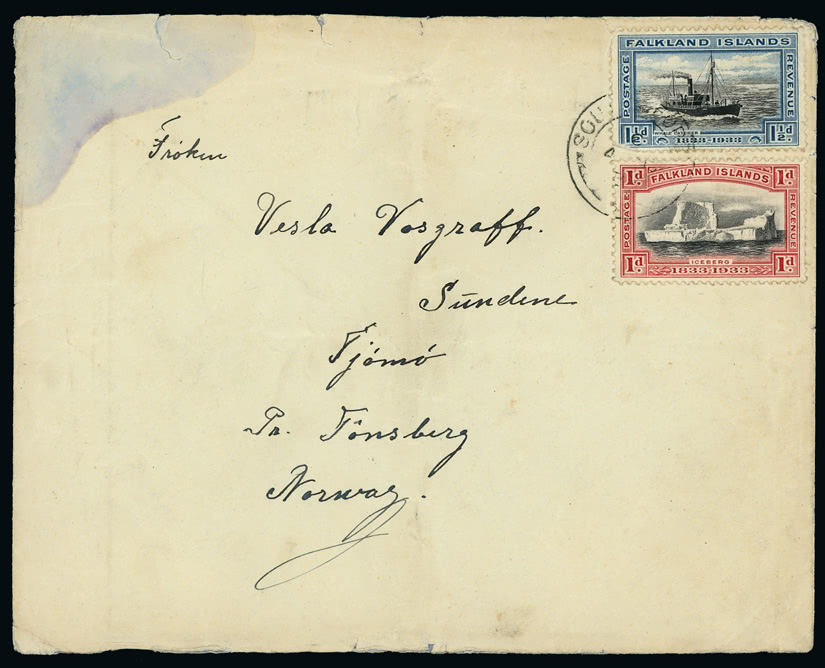 FALKLAND ISLANDS
POSTAGE
REVENUE
WHALE CATCHER
1½d. 1823-1933 1½d.
SOU
1d. FALKLAND ISLANDS 1d.
POSTAGE
REVENUE
ICEBERG
1d. 1833-1933 1d.
Frøken
Vesla Vosgraff.
Sūndene
Tjömö
Pr. Tönsberg
Norway.